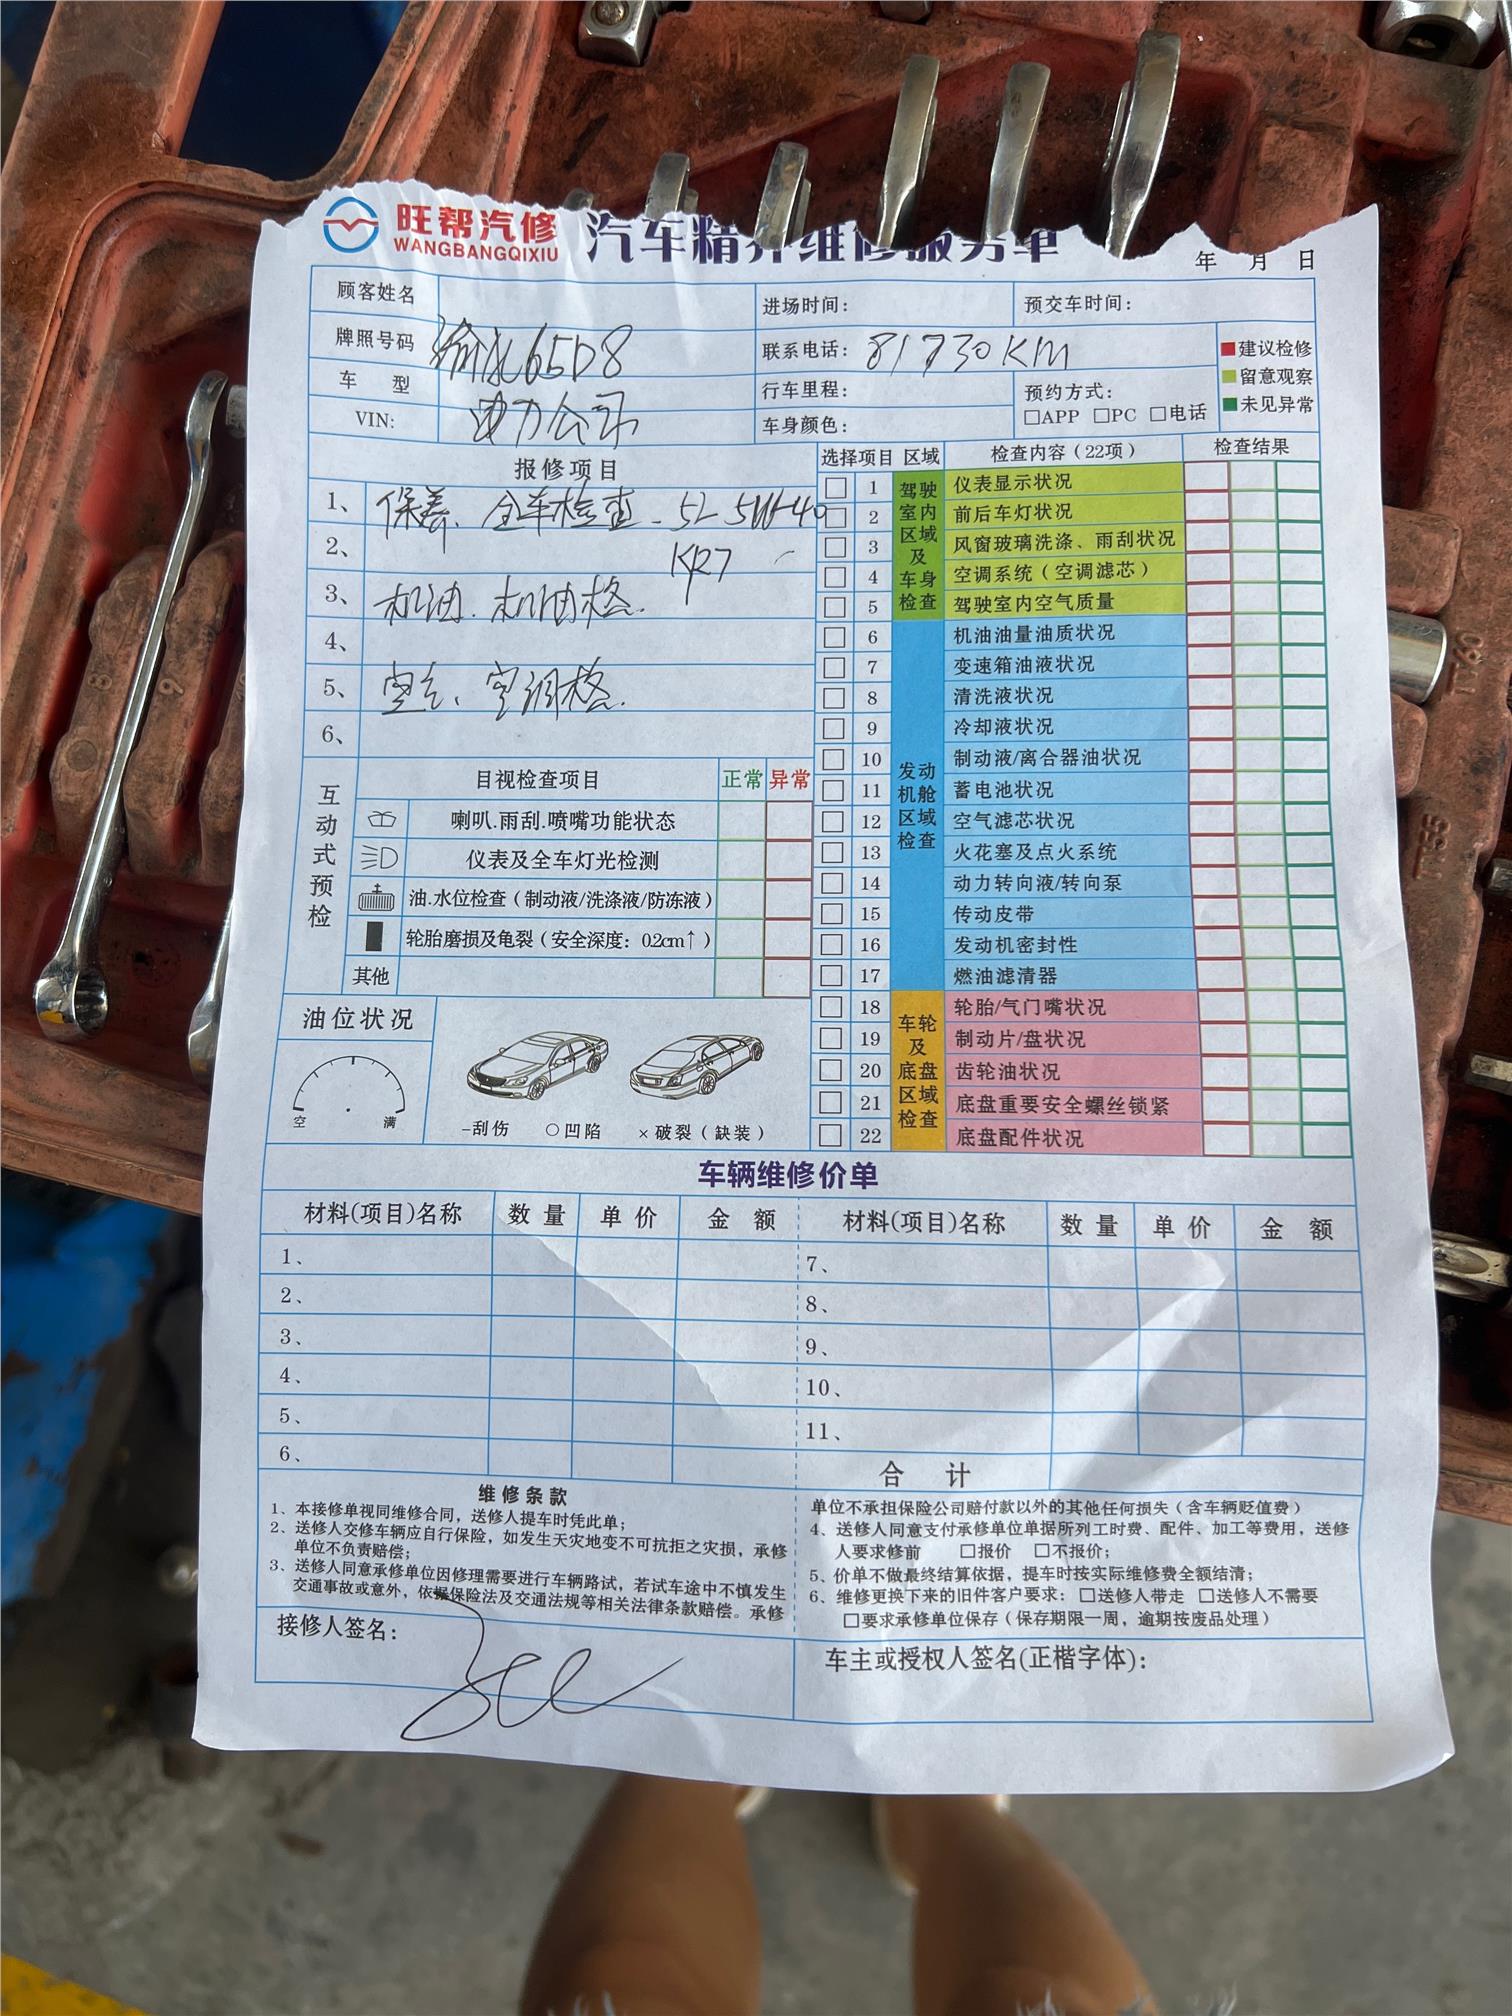 旺帮汽修
WANGBANGQIXIU
汽车精养维修服务单
年 月 日
顾客姓名
进场时间：
预交车时间：
牌照号码 65D8
联系电话： 81730KM
车 型
行车里程：
预约方式：
□APP □PC □电话
VIN: 电力公司
车身颜色：
建议检修
留意观察
未见异常
报修项目
1、 保养、全车检查 - 5L 5W-40
2、 KR7
3、 机油、机油格.
4、
5、 空气、空调格.
6、
选择项目 区域 检查内容（22项） 检查结果
驾驶室内区域及车身检查
1 仪表显示状况
2 前后车灯状况
3 风窗玻璃洗涤、雨刮状况
4 空调系统（空调滤芯）
5 驾驶室内空气质量
发动机舱区域检查
6 机油油量油质状况
7 变速箱油液状况
8 清洗液状况
9 冷却液状况
10 制动液/离合器油状况
11 蓄电池状况
12 空气滤芯状况
13 火花塞及点火系统
14 动力转向液/转向泵
15 传动皮带
16 发动机密封性
17 燃油滤清器
车轮及底盘区域检查
18 轮胎/气门嘴状况
19 制动片/盘状况
20 齿轮油状况
21 底盘重要安全螺丝锁紧
22 底盘配件状况
互动式预检
目视检查项目 正常 异常
喇叭.雨刮.喷嘴功能状态
仪表及全车灯光检测
油.水位检查（制动液/洗涤液/防冻液）
轮胎磨损及龟裂（安全深度：0.2cm↑）
其他
油位状况
空 满
-刮伤 ○凹陷 ×破裂（缺装）
车辆维修价单
材料(项目)名称 数 量 单 价 金 额 材料(项目)名称 数 量 单 价 金 额
1、 7、
2、 8、
3、 9、
4、 10、
5、 11、
6、 合 计
维修条款
1、本接修单视同维修合同，送修人提车时凭此单；
2、送修人交修车辆应自行保险，如发生天灾地变不可抗拒之灾损，承修
单位不负责赔偿；
3、送修人同意承修单位因修理需要进行车辆路试，若试车途中不慎发生
交通事故或意外，依据保险法及交通法规等相关法律条款赔偿。承修
单位不承担保险公司赔付款以外的其他任何损失（含车辆贬值费）
4、送修人同意支付承修单位单据所列工时费、配件、加工等费用，送修
人要求修前 □报价 □不报价；
5、价单不做最终结算依据，提车时按实际维修费全额结清；
6、维修更换下来的旧件客户要求：□送修人带走 □送修人不需要
□要求承修单位保存（保存期限一周，逾期按废品处理）
接修人签名：
车主或授权人签名(正楷字体)：